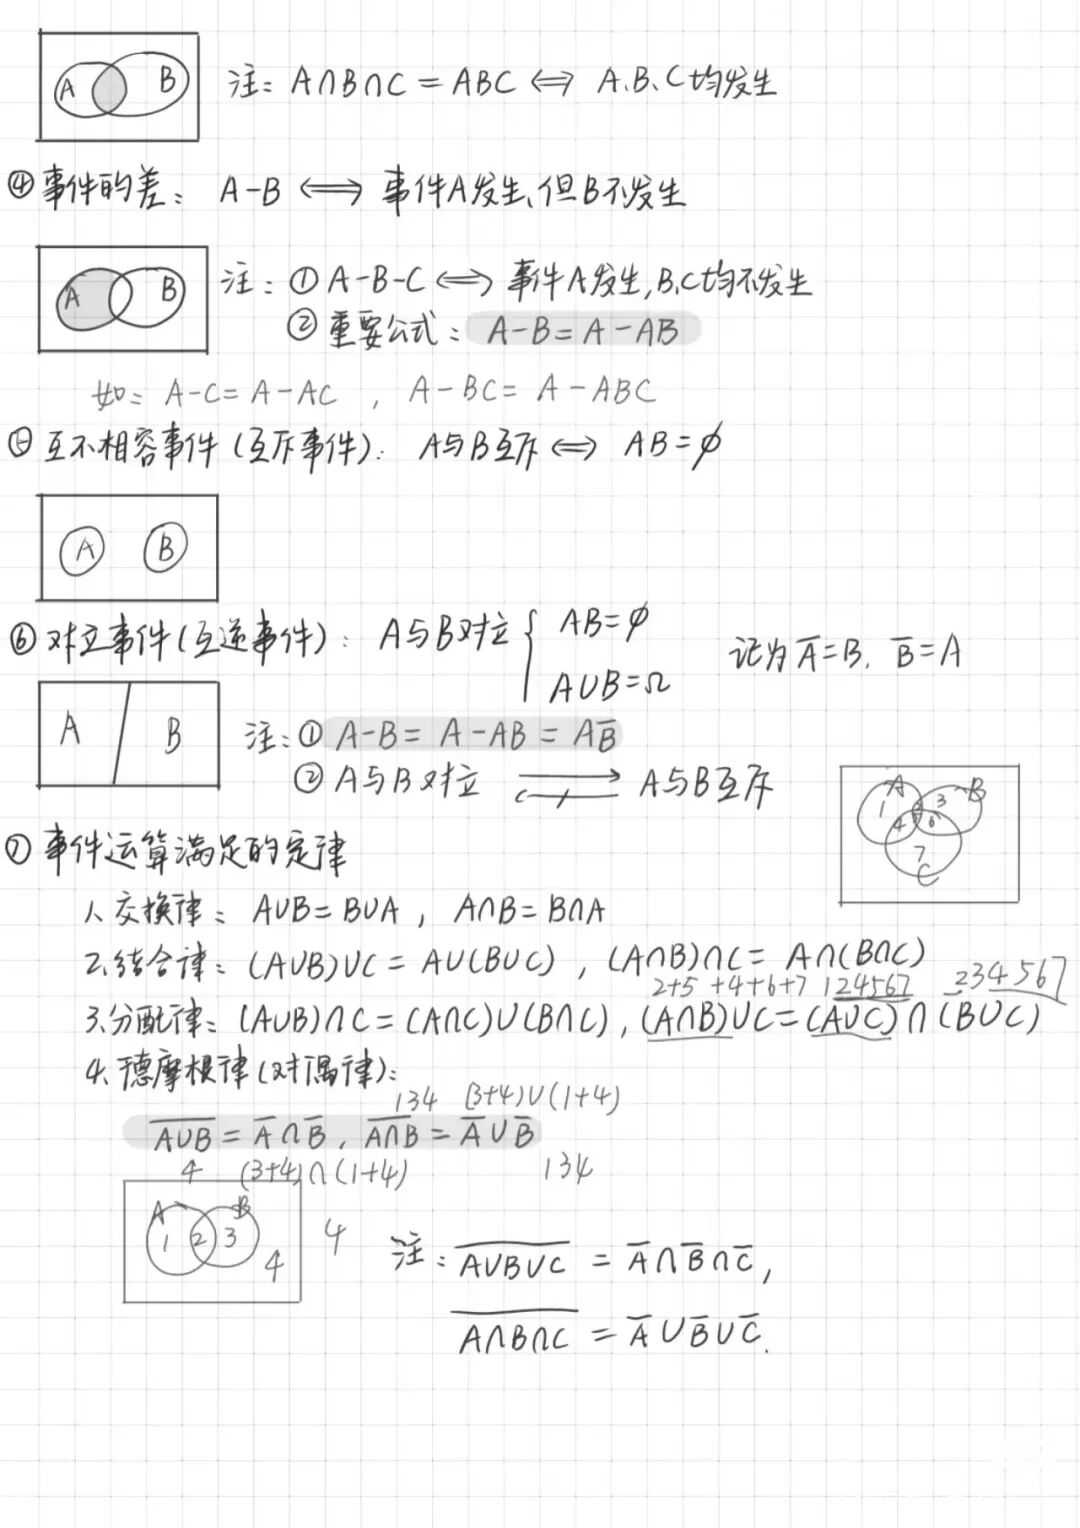 A B
注: A∩B∩C = ABC ⟺ A、B、C均发生
④ 事件的差: A-B ⟺ 事件A发生,但B不发生
A B
注: ① A-B-C ⟺ 事件A发生,B,C均不发生
② 重要公式: A-B = A-AB
如: A-C = A-AC , A-BC = A-ABC
⑤ 互不相容事件 (互斥事件): A与B互斥 ⟺ AB=∅
A B
⑥ 对立事件 (互逆事件): A与B对立 { AB=∅
A∪B=Ω
记为 A̅=B, B̅=A
A B
注: ① A-B = A-AB = AB̅
② A与B对立 ⇄̸ A与B互斥
A B 1 3 4 5 6 7 C
⑦ 事件运算满足的定律
1、交换律: A∪B = B∪A , A∩B = B∩A
2、结合律: (A∪B)∪C = A∪(B∪C) , (A∩B)∩C = A∩(B∩C)
2+5 +4+6+7 124567 234567
3、分配律: (A∪B)∩C = (A∩C)∪(B∩C) , (A∩B)∪C = (A∪C)∩(B∪C)
4、德摩根律 (对偶律):
134 (3+4)∪(1+4)
A∪B̅ = A̅∩B̅ , A∩B̅ = A̅∪B̅
4 (3+4)∩(1+4) 134
A B 1 2 3 4
4
注: A∪B∪C̅ = A̅∩B̅∩C̅,
A∩B∩C̅ = A̅∪B̅∪C̅.